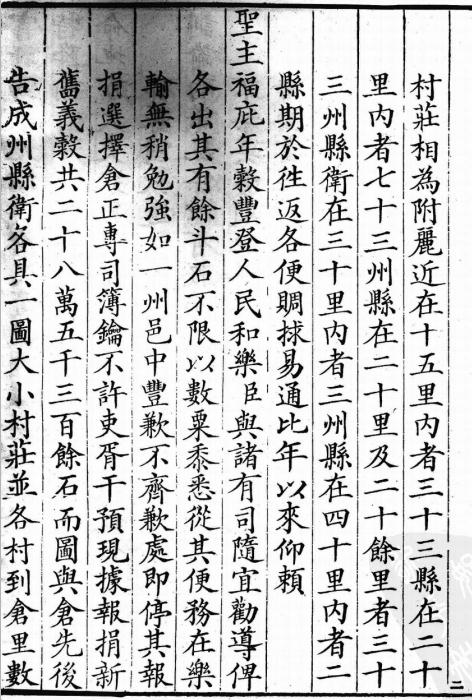 村莊相為附麗近在十五里內者三十三縣在二十
里內者七十三州縣在二十里及二十餘里者三十
三州縣衛在三十里內者三州縣在四十里內者二
縣期於徃返各便賙捄易通比年以來仰賴
聖主福庇年穀豐登人民和樂臣與諸有司隨宜勸導俾
各出其有餘斗石不限以數粟黍悉從其便務在樂
輸無稍勉強如一州邑中豐歉不齊歉處即停其報
捐選擇倉正專司簿鑰不許吏胥干預現據報捐新
舊義穀共二十八萬五千三百餘石而圖與倉先後
告成州縣衛各具一圖大小村莊並各村到倉里數
二